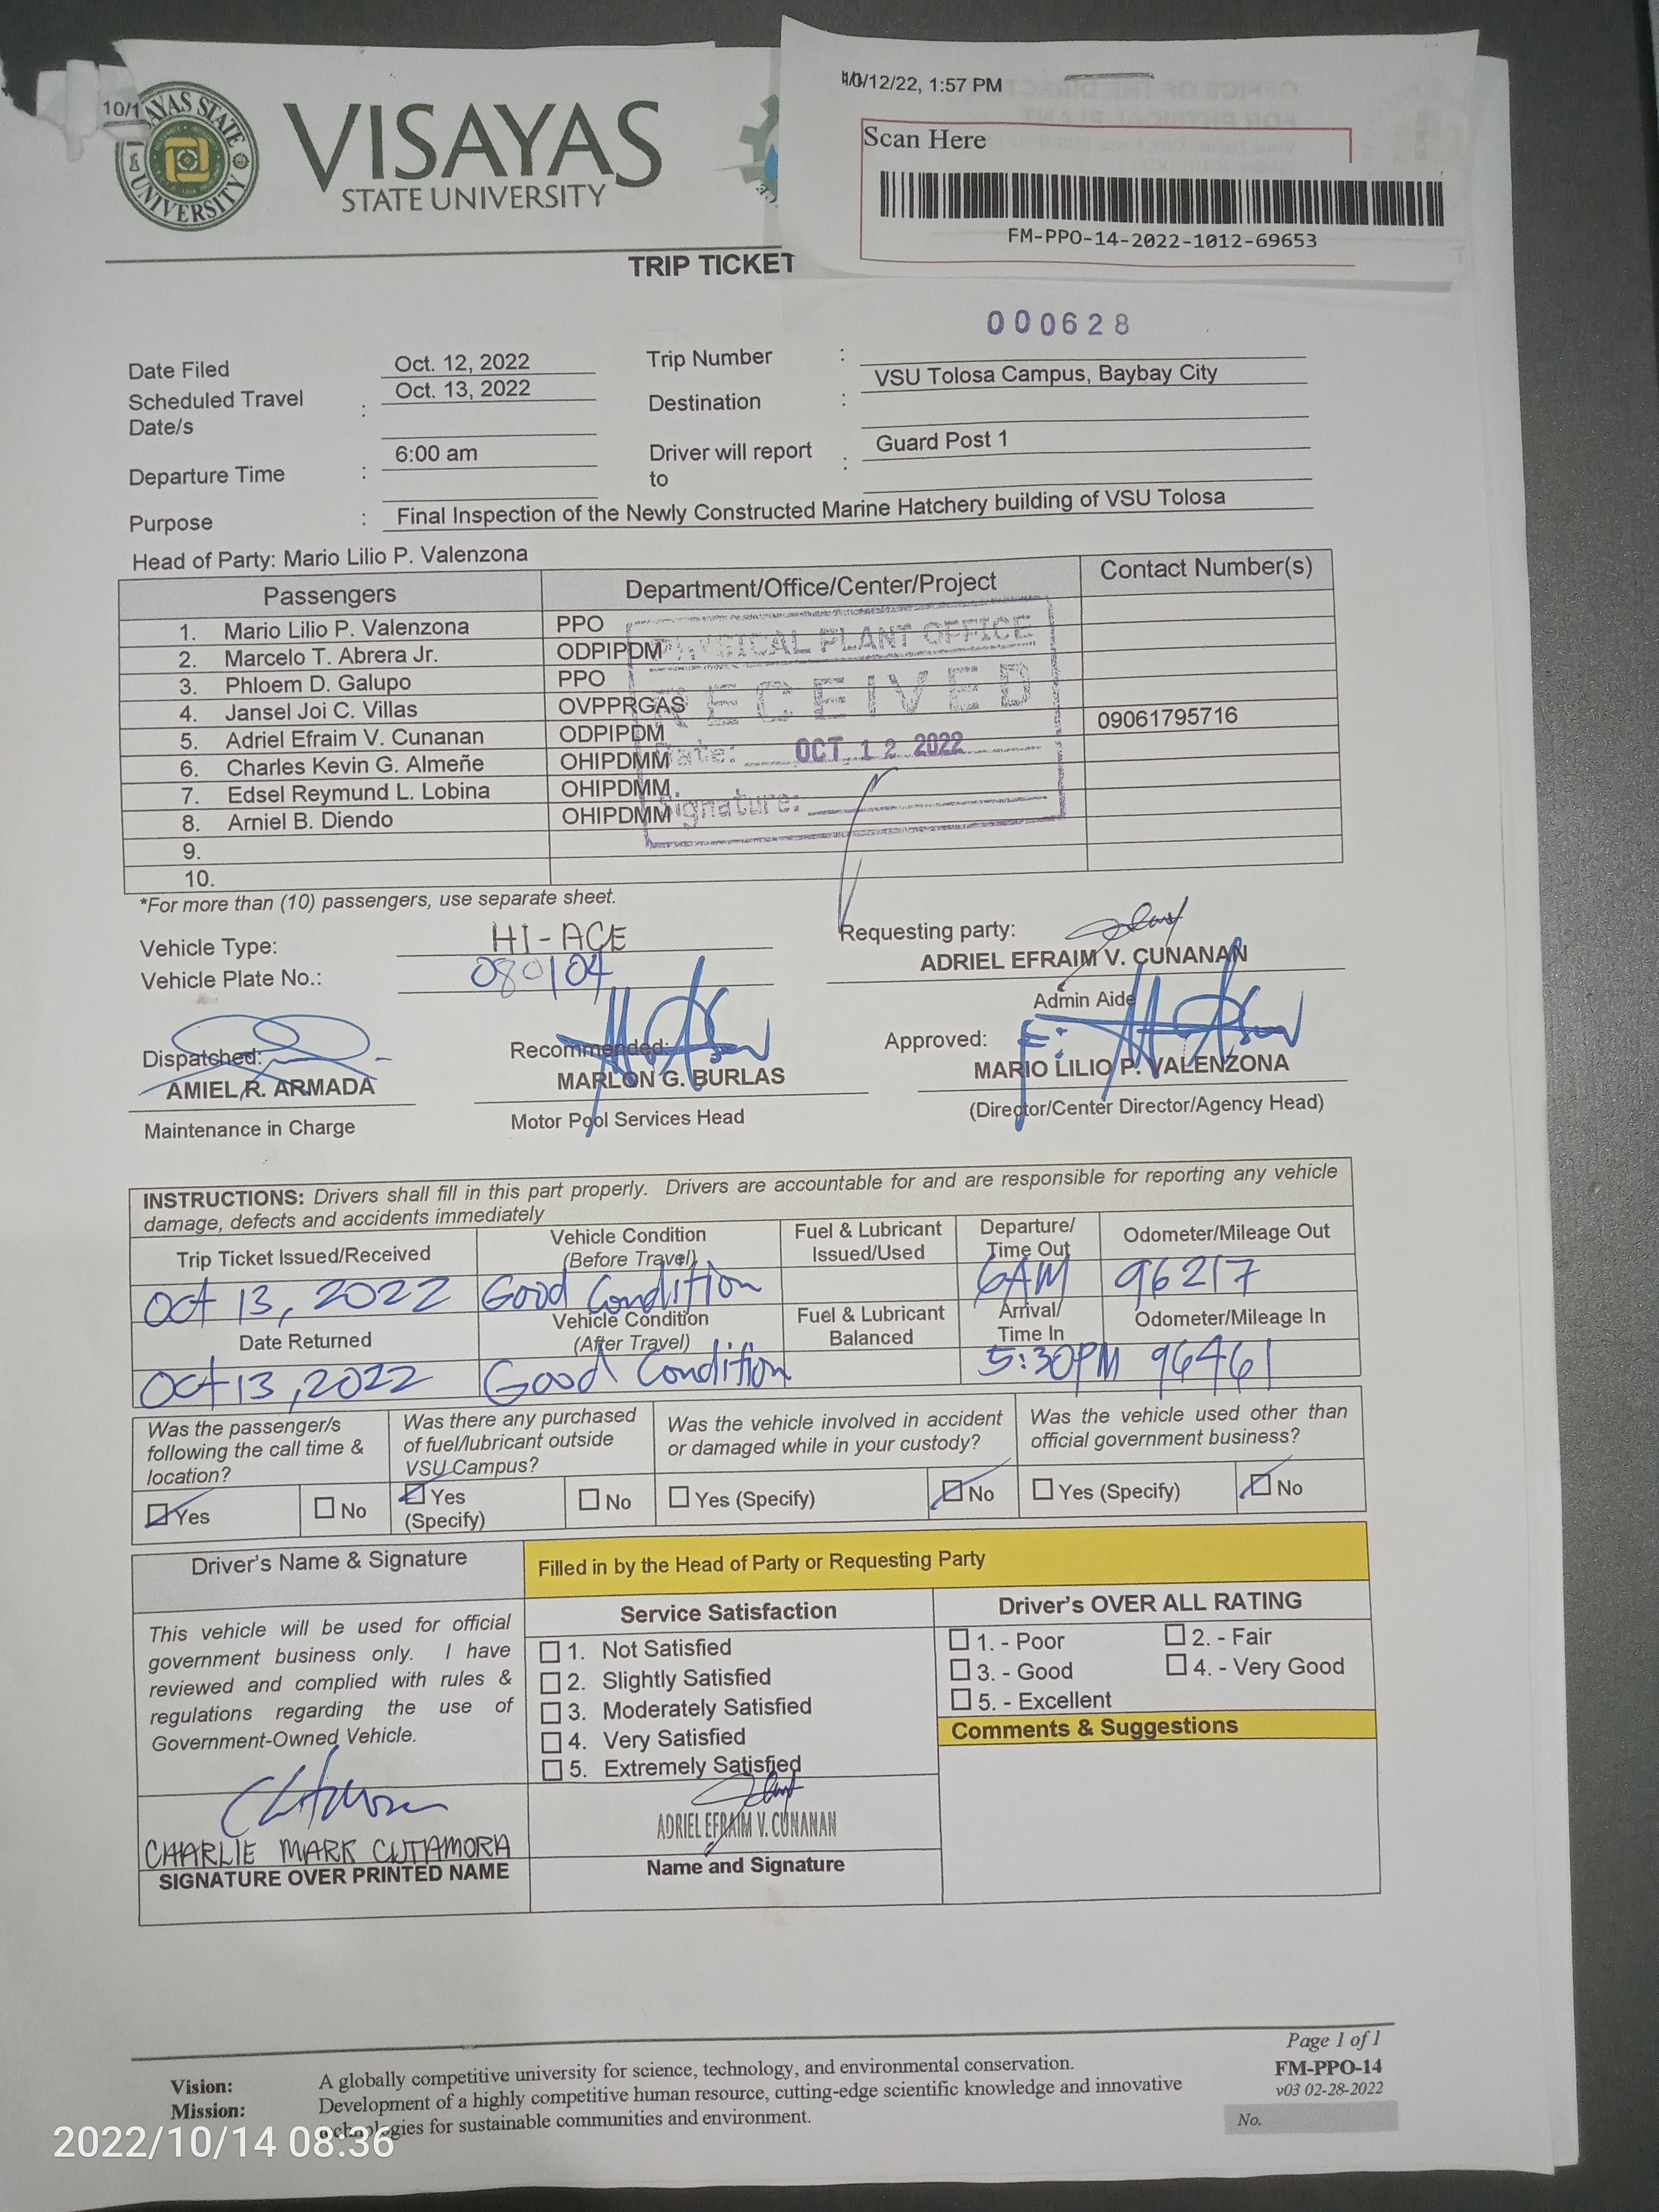 10/12/22, 1:57 PM
10/1
VISAYAS STATE UNIVERSITY
VISAYAS
STATE UNIVERSITY
Scan Here
FM-PPO-14-2022-1012-69653
TRIP TICKET
000628
Date Filed Oct. 12, 2022 Trip Number :
Scheduled Travel Date/s : Oct. 13, 2022 Destination : VSU Tolosa Campus, Baybay City
Departure Time : 6:00 am Driver will report to : Guard Post 1
Purpose : Final Inspection of the Newly Constructed Marine Hatchery building of VSU Tolosa
Head of Party: Mario Lilio P. Valenzona
Passengers Department/Office/Center/Project Contact Number(s)
1. Mario Lilio P. Valenzona PPO
2. Marcelo T. Abrera Jr. ODPIPDM
3. Phloem D. Galupo PPO
4. Jansel Joi C. Villas OVPPRGAS
5. Adriel Efraim V. Cunanan ODPIPDM 09061795716
6. Charles Kevin G. Almeñe OHIPDMM
7. Edsel Reymund L. Lobina OHIPDMM
8. Arniel B. Diendo OHIPDMM
9.
10.
PHYSICAL PLANT OFFICE
RECEIVED
Date: OCT 12 2022
Signature:
*For more than (10) passengers, use separate sheet.
Vehicle Type: HI-ACE
Vehicle Plate No.: 080104
Requesting party:
ADRIEL EFRAIM V. CUNANAN
Admin Aide
Dispatched:
AMIEL R. ARMADA
Maintenance in Charge
Recommended:
MARLON G. BURLAS
Motor Pool Services Head
Approved:
MARIO LILIO P. VALENZONA
(Director/Center Director/Agency Head)
INSTRUCTIONS: Drivers shall fill in this part properly. Drivers are accountable for and are responsible for reporting any vehicle
damage, defects and accidents immediately
Trip Ticket Issued/Received Vehicle Condition (Before Travel) Fuel & Lubricant Issued/Used Departure/ Time Out Odometer/Mileage Out
Oct 13, 2022 Good Condition 6AM 96217
Date Returned Vehicle Condition (After Travel) Fuel & Lubricant Balanced Arrival/ Time In Odometer/Mileage In
Oct 13, 2022 Good Condition 5:30PM 96461
Was the passenger/s following the call time & location?
Yes No
Was there any purchased of fuel/lubricant outside VSU Campus?
Yes (Specify) No
Was the vehicle involved in accident or damaged while in your custody?
Yes (Specify) No
Was the vehicle used other than official government business?
Yes (Specify) No
Driver's Name & Signature
Filled in by the Head of Party or Requesting Party
This vehicle will be used for official
government business only. I have
reviewed and complied with rules &
regulations regarding the use of
Government-Owned Vehicle.
CHARLIE MARK CUTAMORA
SIGNATURE OVER PRINTED NAME
Service Satisfaction
1. Not Satisfied
2. Slightly Satisfied
3. Moderately Satisfied
4. Very Satisfied
5. Extremely Satisfied
ADRIEL EFRAIM V. CUNANAN
Name and Signature
Driver's OVER ALL RATING
1. - Poor 2. - Fair
3. - Good 4. - Very Good
5. - Excellent
Comments & Suggestions
Page 1 of 1
FM-PPO-14
v03 02-28-2022
No.
Vision: A globally competitive university for science, technology, and environmental conservation.
Mission: Development of a highly competitive human resource, cutting-edge scientific knowledge and innovative
technologies for sustainable communities and environment.
2022/10/14 08:36